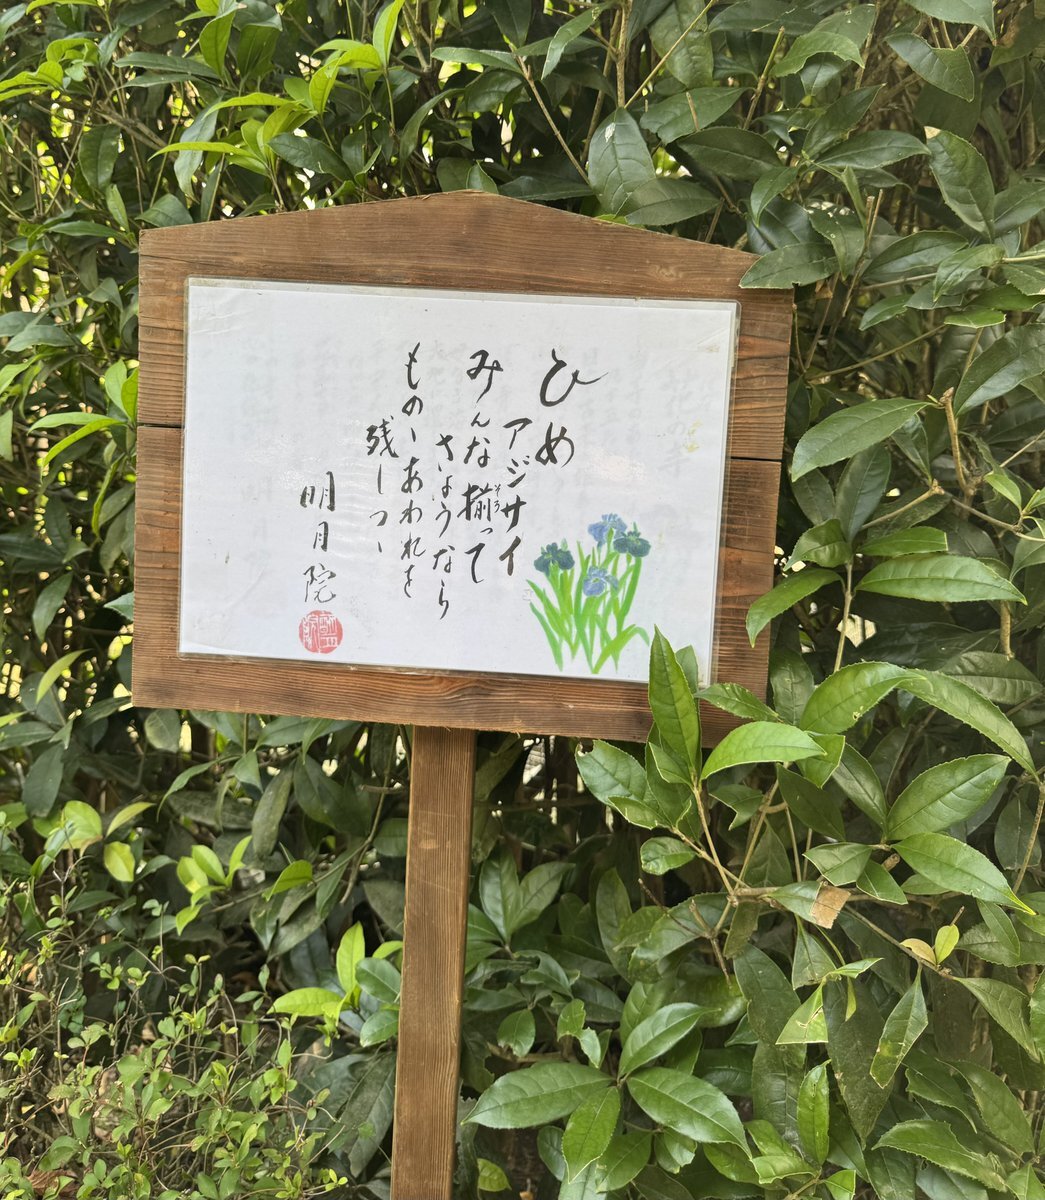 ひめ
アジサイ
みんな揃って
そろ
さようなら
ものゝあわれを
残しつゝ
明月院